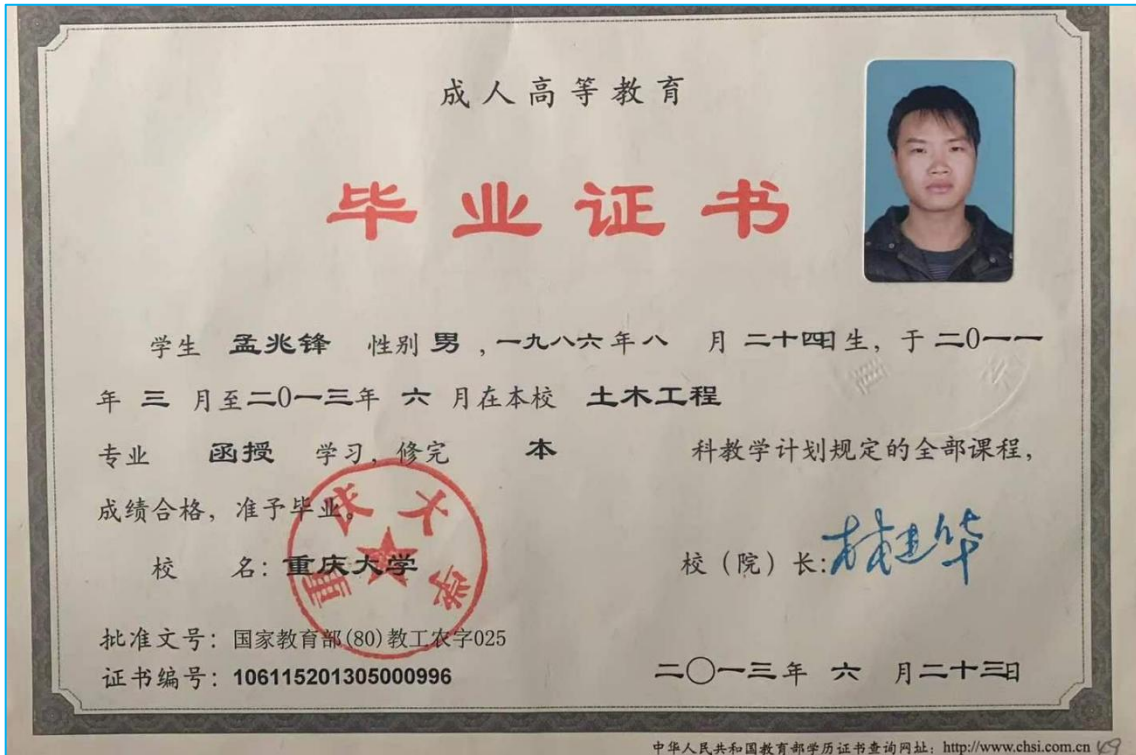 成人高等教育
毕业证书
学生 孟兆锋 性别 男 , 一九八六年八 月 二十四日生, 于 二0一一
年 三 月至二0一三年 六 月在本校 土木工程
专业 函授 学习, 修完 本 科教学计划规定的全部课程,
成绩合格, 准予毕业。
校 名: 重庆大学 校（院）长: 林建华
重庆大学
批准文号: 国家教育部(80)教工农字025
证书编号: 106115201305000996 二〇一三年 六 月二十三日
中华人民共和国教育部学历证书查询网址: http://www.chsi.com.cn